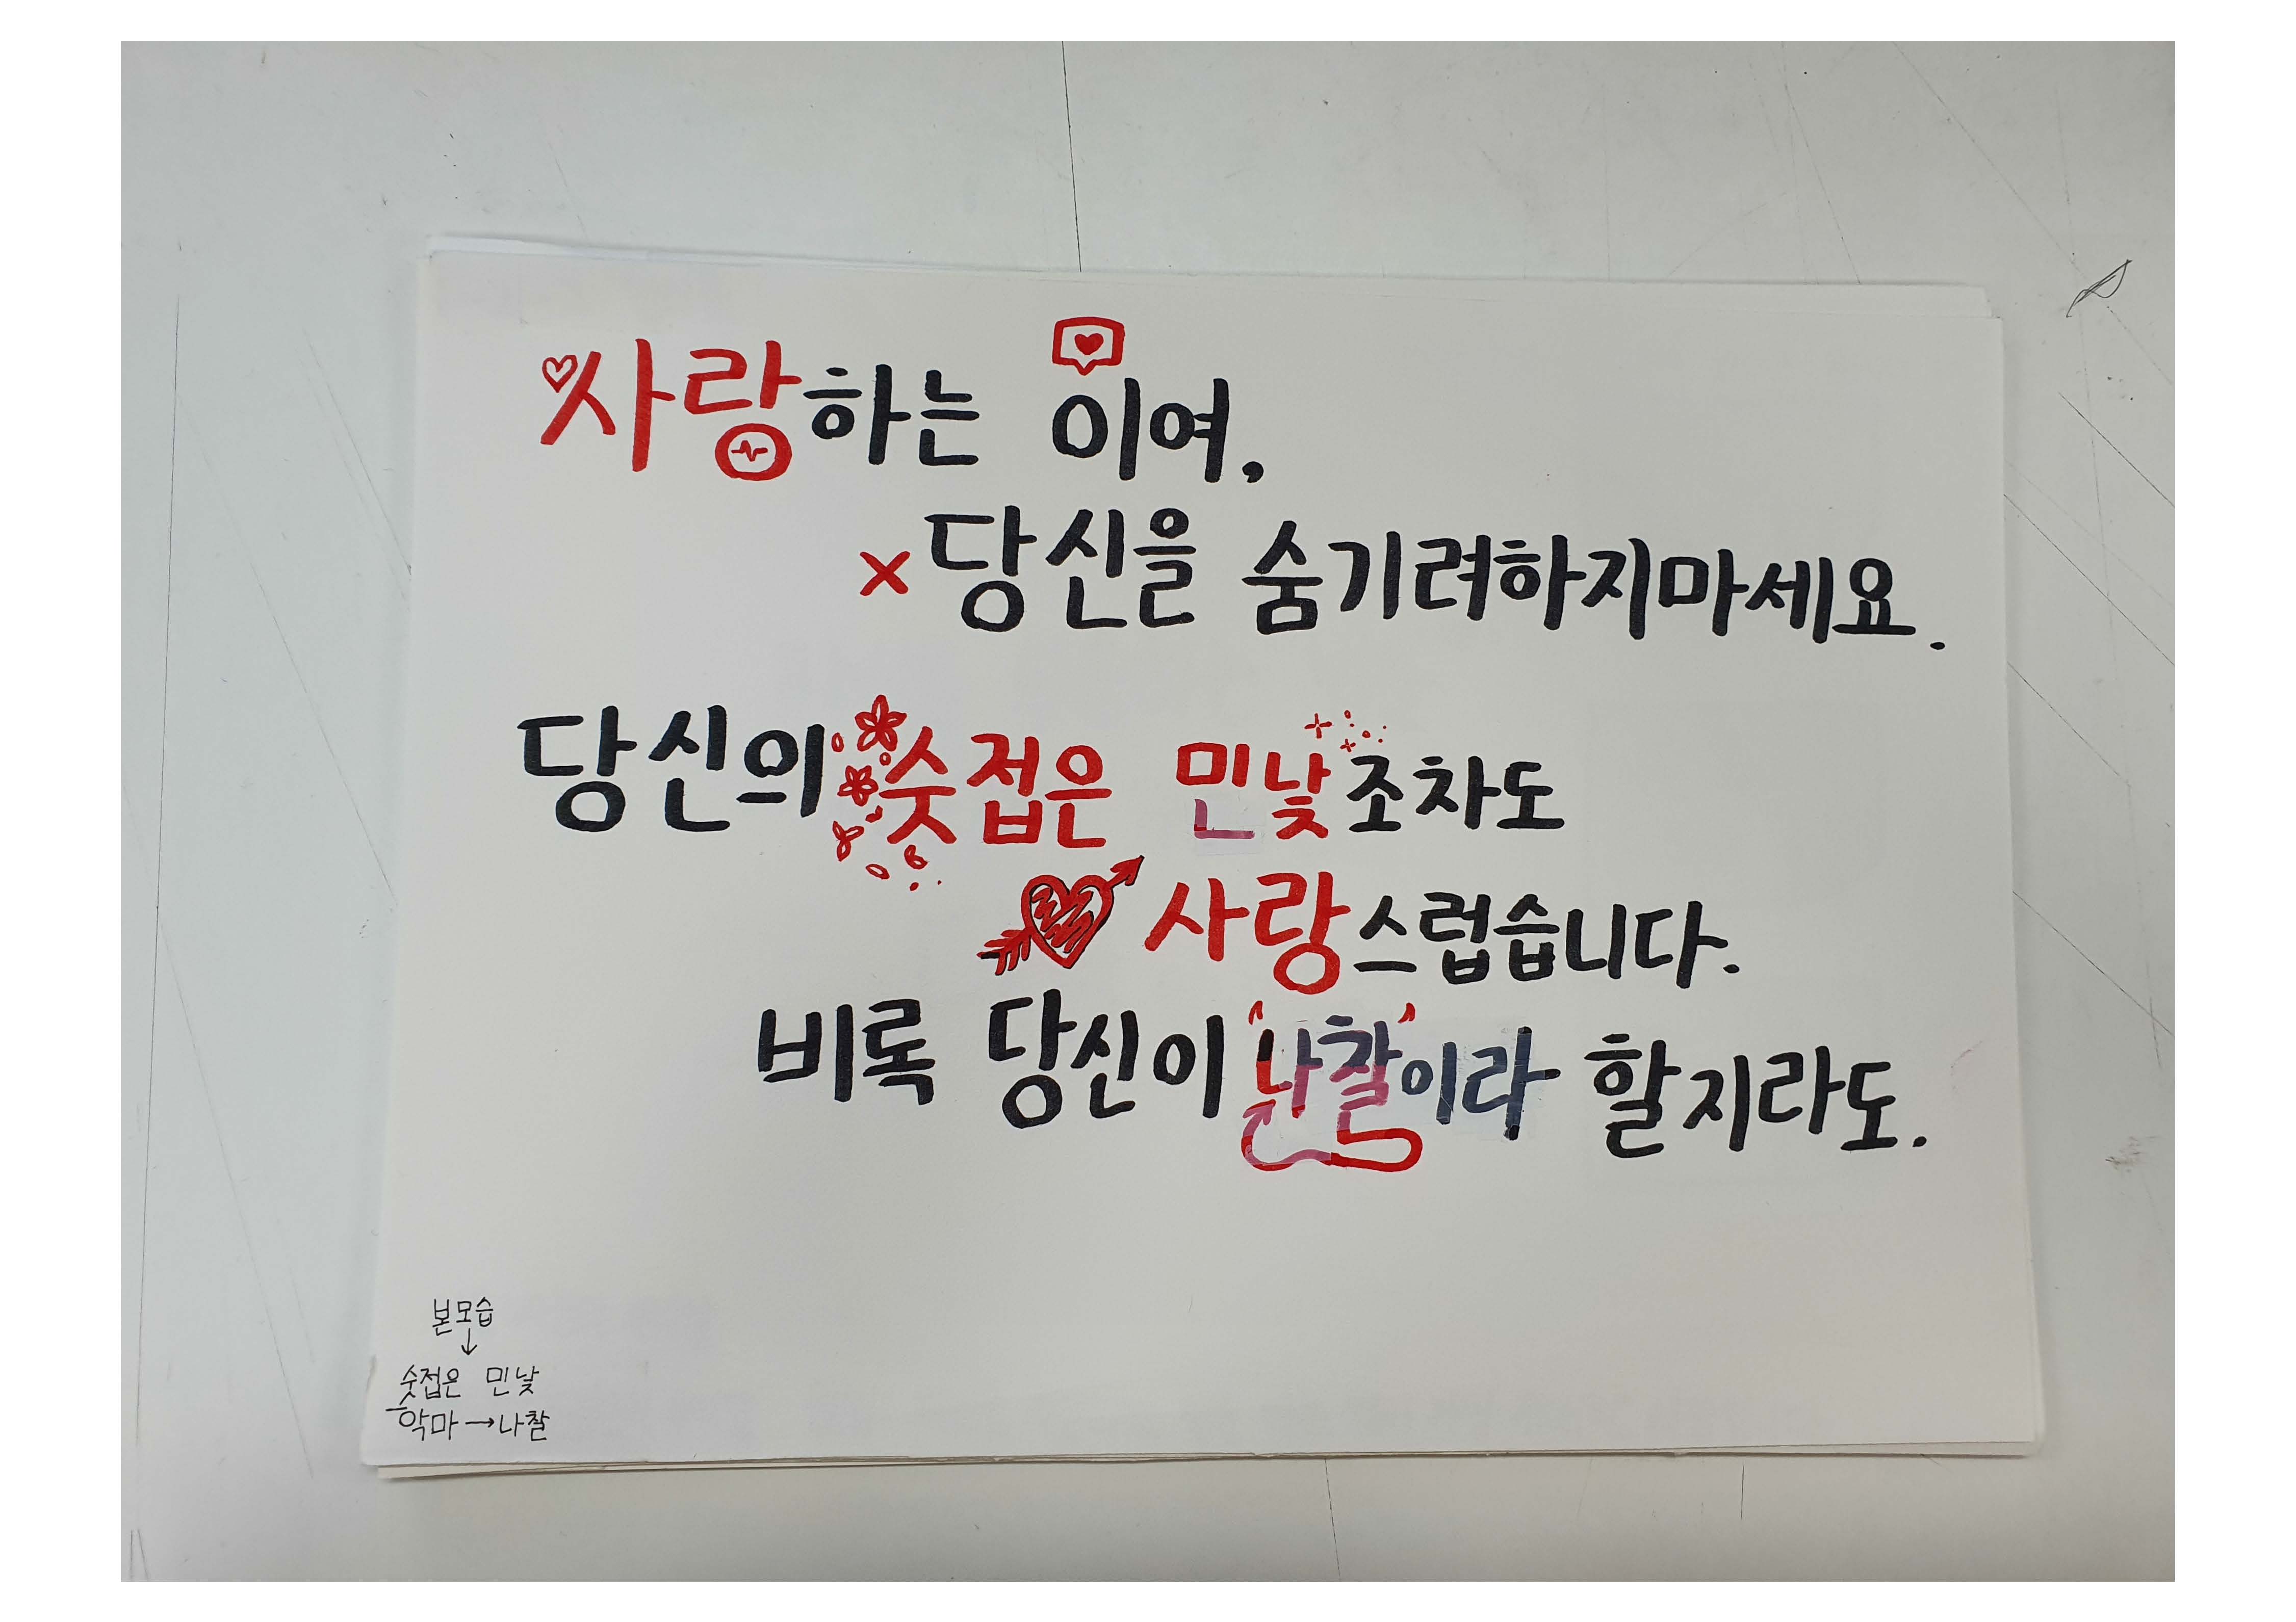 사랑하는 이여,
당신을 숨기려하지마세요.
당신의 숫접은 민낯조차도
사랑스럽습니다.
비록 당신이 나찰이라 할지라도.
본모습
↓
숫접은 민낯
악마→나찰